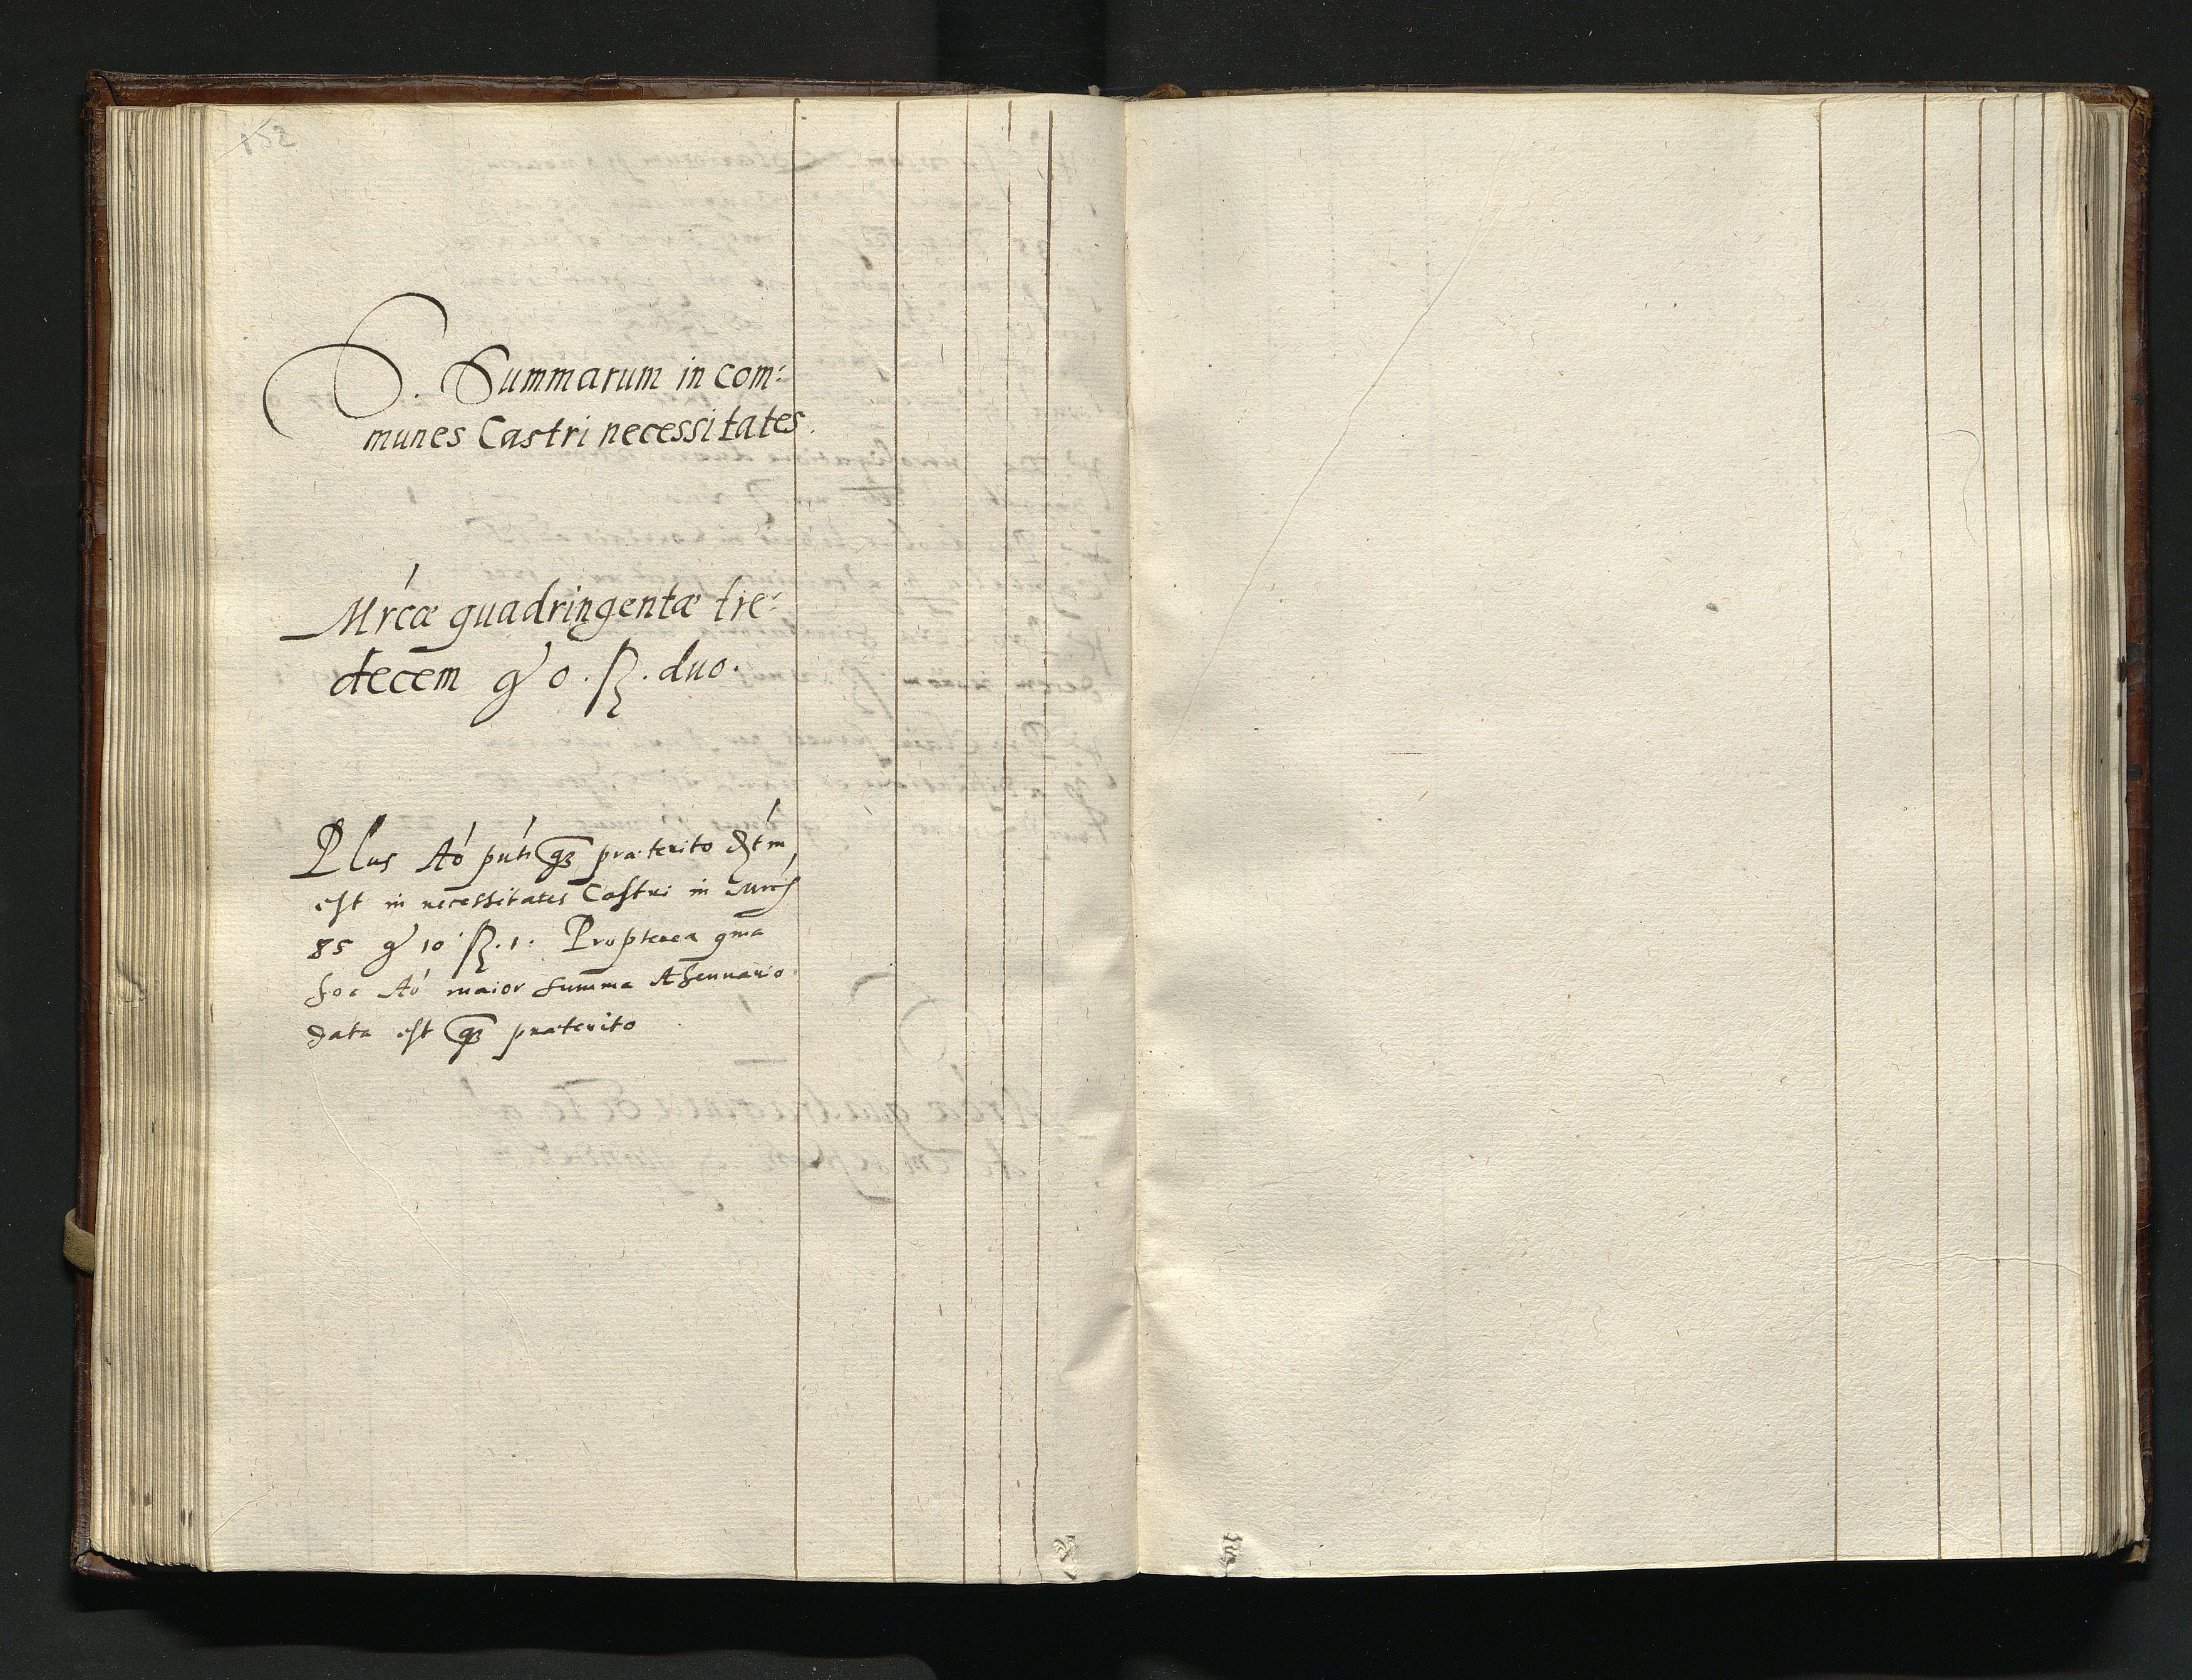 152
S. Summarum in com:
munes Castri necessitates.
Mrcæ quadringentæ tre:
decem gr 0. ß. duo.
Plus Ao pnti qz præterito dtm
est in necessitates Castri in mrcs
85 gr 10 ß. 1. Propterea qma
hoc Ao maior summa Ahenario
data est qz præterito